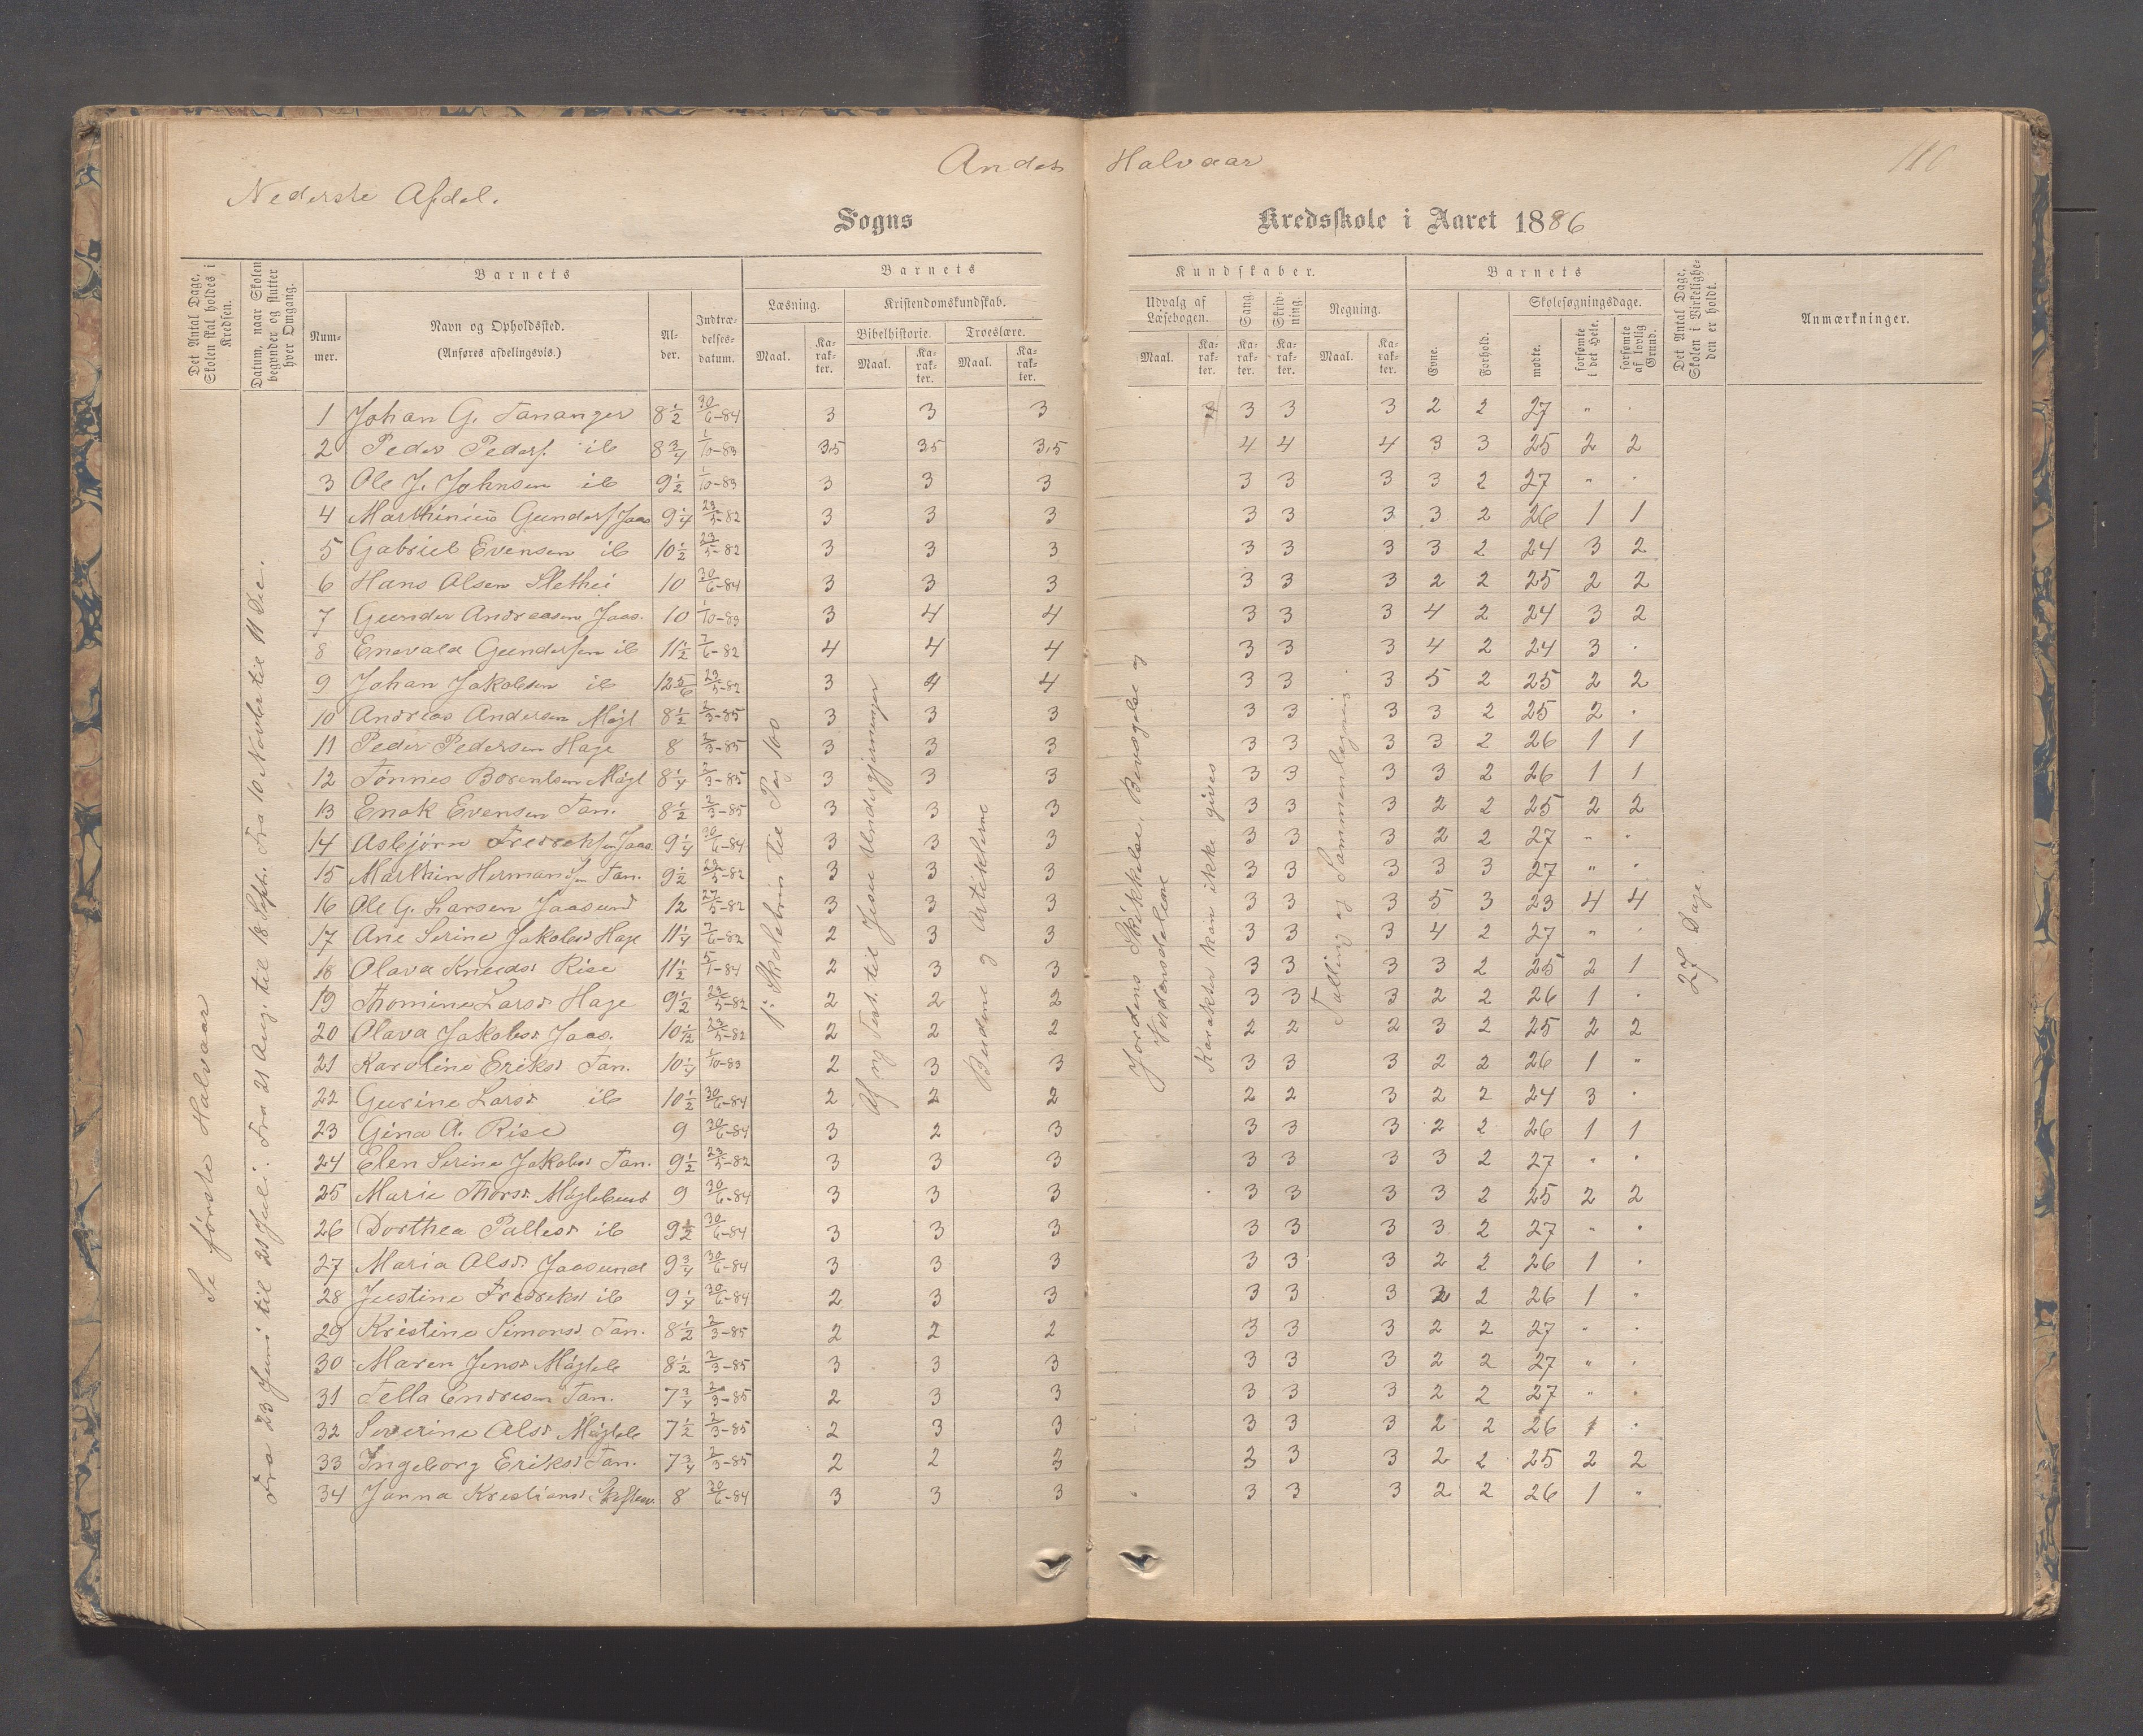 Andet Halvaar
110
Nederste Afdel.
Sogns Kredsskole i Aaret 1886
Det Antal Dage, Skolen skal holdes i Kredsen.
Datum, naar Skolen begynder og slutter hver Omgang.
Barnets
Nummer.
Navn og Opholdssted.
(Anføres afdelingsvis.)
Alder.
Indtrædelsesdatum.
Barnets Kundskaber.
Læsning.
Kristendomskundskab.
Bibelhistorie.
Troeslære.
Udvalg af Læsebogen.
Sang.
Skrivning.
Regning.
Maal.
Karakter.
Barnets
Evne.
Forhold.
Skolesøgningsdage.
mødte.
forsømte i det Hele.
forsømte af lovlig Grund.
Det Antal Dage, Skolen i Virkeligheden er holdt.
Anmærkninger.
Se første Halvaar
Fra 23 Juni til 21 Juli. Fra 21 Aug. til 18 Sept. Fra 10 Novber til 11 Dec.
Af ny Test. til Jesu Undergjerninger
Budene og Artiklerne
Jordens Skikkelse, Bevægelse og Verdensdelene
Karakter kan ikke gives
Tælling og Sammenlægning
27 Dage.
1 Johan G. Tananger 8 1/2 30/6-84 3 3 3 3 3 3 2 2 27 " .
2 Peder Peders. ib 8 3/4 1/10-83 3,5 3,5 3,5 4 4 4 3 3 25 2 2
3 Ole J. Johnsen ib 9 1/2 1/10-83 3 3 3 3 3 3 3 2 27 " .
4 Marthinius Gunders. Jaas 9 1/4 23/5-82 3 3 3 3 3 3 3 2 26 1 1
5 Gabriel Evensen ib 10 1/2 23/5-82 3 3 3 3 3 3 3 2 24 3 2
6 Hans Olsen Slethei 10 30/6-84 3 3 3 3 3 3 2 2 25 2 2
7 Gunder Andreasen Jaas. 10 1/10-83 3 4 4 3 3 3 4 2 24 3 2
8 Enevald Gundersen ib 11 1/2 7/6-82 4 4 4 3 3 3 4 2 24 3 .
9 Johan Jakobsen ib 12 5/6 23/5-82 3 4 4 3 3 3 5 2 25 2 2
10 Andreas Andersen Møgl 8 1/2 2/3-85 3 3 3 3 3 3 3 2 25 2 .
11 Peder Pedersen Hage 8 2/3-85 3 3 3 3 3 3 3 2 26 1 1
12 Tønnes Borentsen Møgl 8 1/4 2/3-85 3 3 3 3 3 3 3 2 26 1 1
13 Enok Evensen Tan. 8 1/2 2/3-85 3 3 3 3 3 3 2 2 25 2 2
14 Asbjørn Fredreksen Jaas 9 1/4 30/6-84 3 3 3 3 3 3 2 2 27 " .
15 Marthin Hermansen Tan. 9 1/2 23/5-82 3 3 3 3 3 3 3 3 27 " .
16 Ole G. Larsen Jaasund 12 23/5-82 3 3 3 3 3 3 5 3 23 4 4
17 Ane Serine Jakobsd Hage 11 1/4 7/6-82 2 3 3 3 3 3 4 2 27 " .
18 Olava Knudsd Rise 11 1/2 5/1-84 2 3 3 3 3 3 3 2 25 2 1
19 Thomine Larsd Hage 9 1/2 23/5-82 2 2 2 3 3 3 2 2 26 1 .
20 Olava Jakobsd Jaas. 10 1/12 23/5-82 2 2 2 2 2 2 3 2 25 2 2
21 Karoline Eriksd Tan. 10 1/4 1/10-83 2 3 3 3 3 3 2 2 26 1 "
22 Gurine Larsd ib 10 1/2 30/6-84 2 2 2 2 2 3 2 2 24 3 .
23 Gina A. Rise 9 30/6-84 3 2 3 3 3 3 2 2 26 1 1
24 Elen Serine Jakobsd Tan. 9 1/2 23/5-82 3 3 3 3 3 3 3 2 27 " "
25 Marie Thorsd. Møglebust 9 30/6-84 3 3 3 3 3 3 3 2 25 2 2
26 Dorthea Pallesd ib 9 1/2 30/6-84 3 3 3 3 3 3 3 2 27 " .
27 Maria Olsd Jaasund 9 3/4 30/6-84 3 3 3 3 3 3 2 2 26 1 .
28 Justine Fredreksd ib 9 1/4 30/6-84 2 3 3 3 3 3 2 2 26 1 "
29 Kristine Simonsd. Tan. 8 1/2 2/3-85 2 2 2 3 3 3 2 2 27 " .
30 Maren Jensd Møgleb 8 1/2 2/3-85 3 3 3 3 3 3 2 2 27 " .
31 Tella Endresen Tan. 7 3/4 2/3-85 2 3 3 3 3 3 2 2 27 " .
32 Severine Olsd Møgleb 7 1/2 2/3-85 2 3 3 3 3 3 2 2 26 1 .
33 Ingeborg Eriksd Tan. 7 3/4 2/3-85 2 2 3 3 3 3 2 2 25 2 2
34 Janna Kristiansd 8 30/6-84 3 3 3 3 3 3 2 2 26 1 "